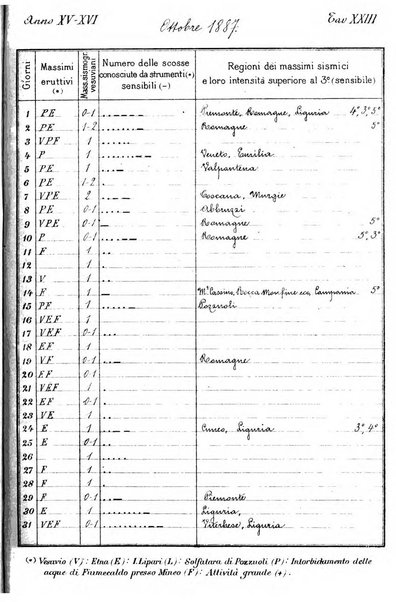 Anno XV-XVI Ottobre 1887. Tav XXIII
Giorni Massimi eruttivi (*) Mass. sismogr. vesuviani Numero delle scosse conosciute da strumenti(•) sensibili (–) Regioni dei massimi sismici e loro intensità superiore al 3º (sensibile)
1 PE 0-1 Piemonte, Romagne, Liguria 4º, 3º, 5º
2 PE 1-2 Romagne 5º
3 VPF 1
4 P 1 Veneto, Emilia
5 PE 1 Valpantena
6 PE 1-2
7 VPE 2 Toscana, Murgie
8 PE 0-1 Abbruzzi
9 VPE 0-1 Romagne 5º
10 P 0-1 Romagne 5º, 3º
11 F 1
12 1
13 V 1
14 F 1 Mte Cassino, Rocca Monfine ecc. Campania 5º
15 PF 1 Pozzuoli
16 VEF 1
17 VEF 0-1
18 EF 1
19 VF 0-1 Romagne
20 EF 0-1
21 VEF 1
22 EF 0-1
23 VE 1
24 E 1 Cuneo, Liguria 3º, 4º
25 E 0-1
26 1
27 F 1
28 F 1
29 F 0-1 Piemonte
30 E 1 Liguria,
31 VEF 0-1 Viterbese, Liguria
(*) Vesuvio (V): Etna (E): I. Lipari (L): Solfatara di Pozzuoli (P): Intorbidamento delle
acque di Fiumecaldo presso Mineo (F): Attività grande (+).